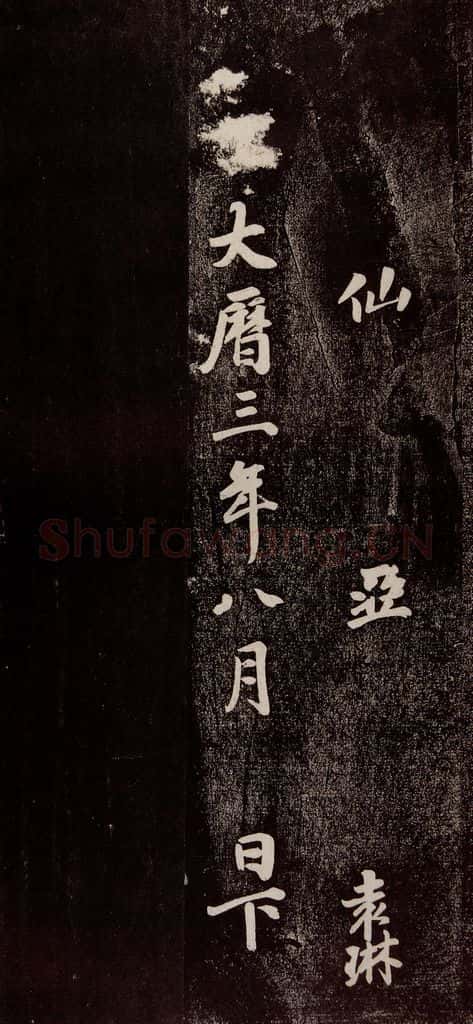 仙 亞 袁琳
大曆三年八月 日下
Shufawang.CN